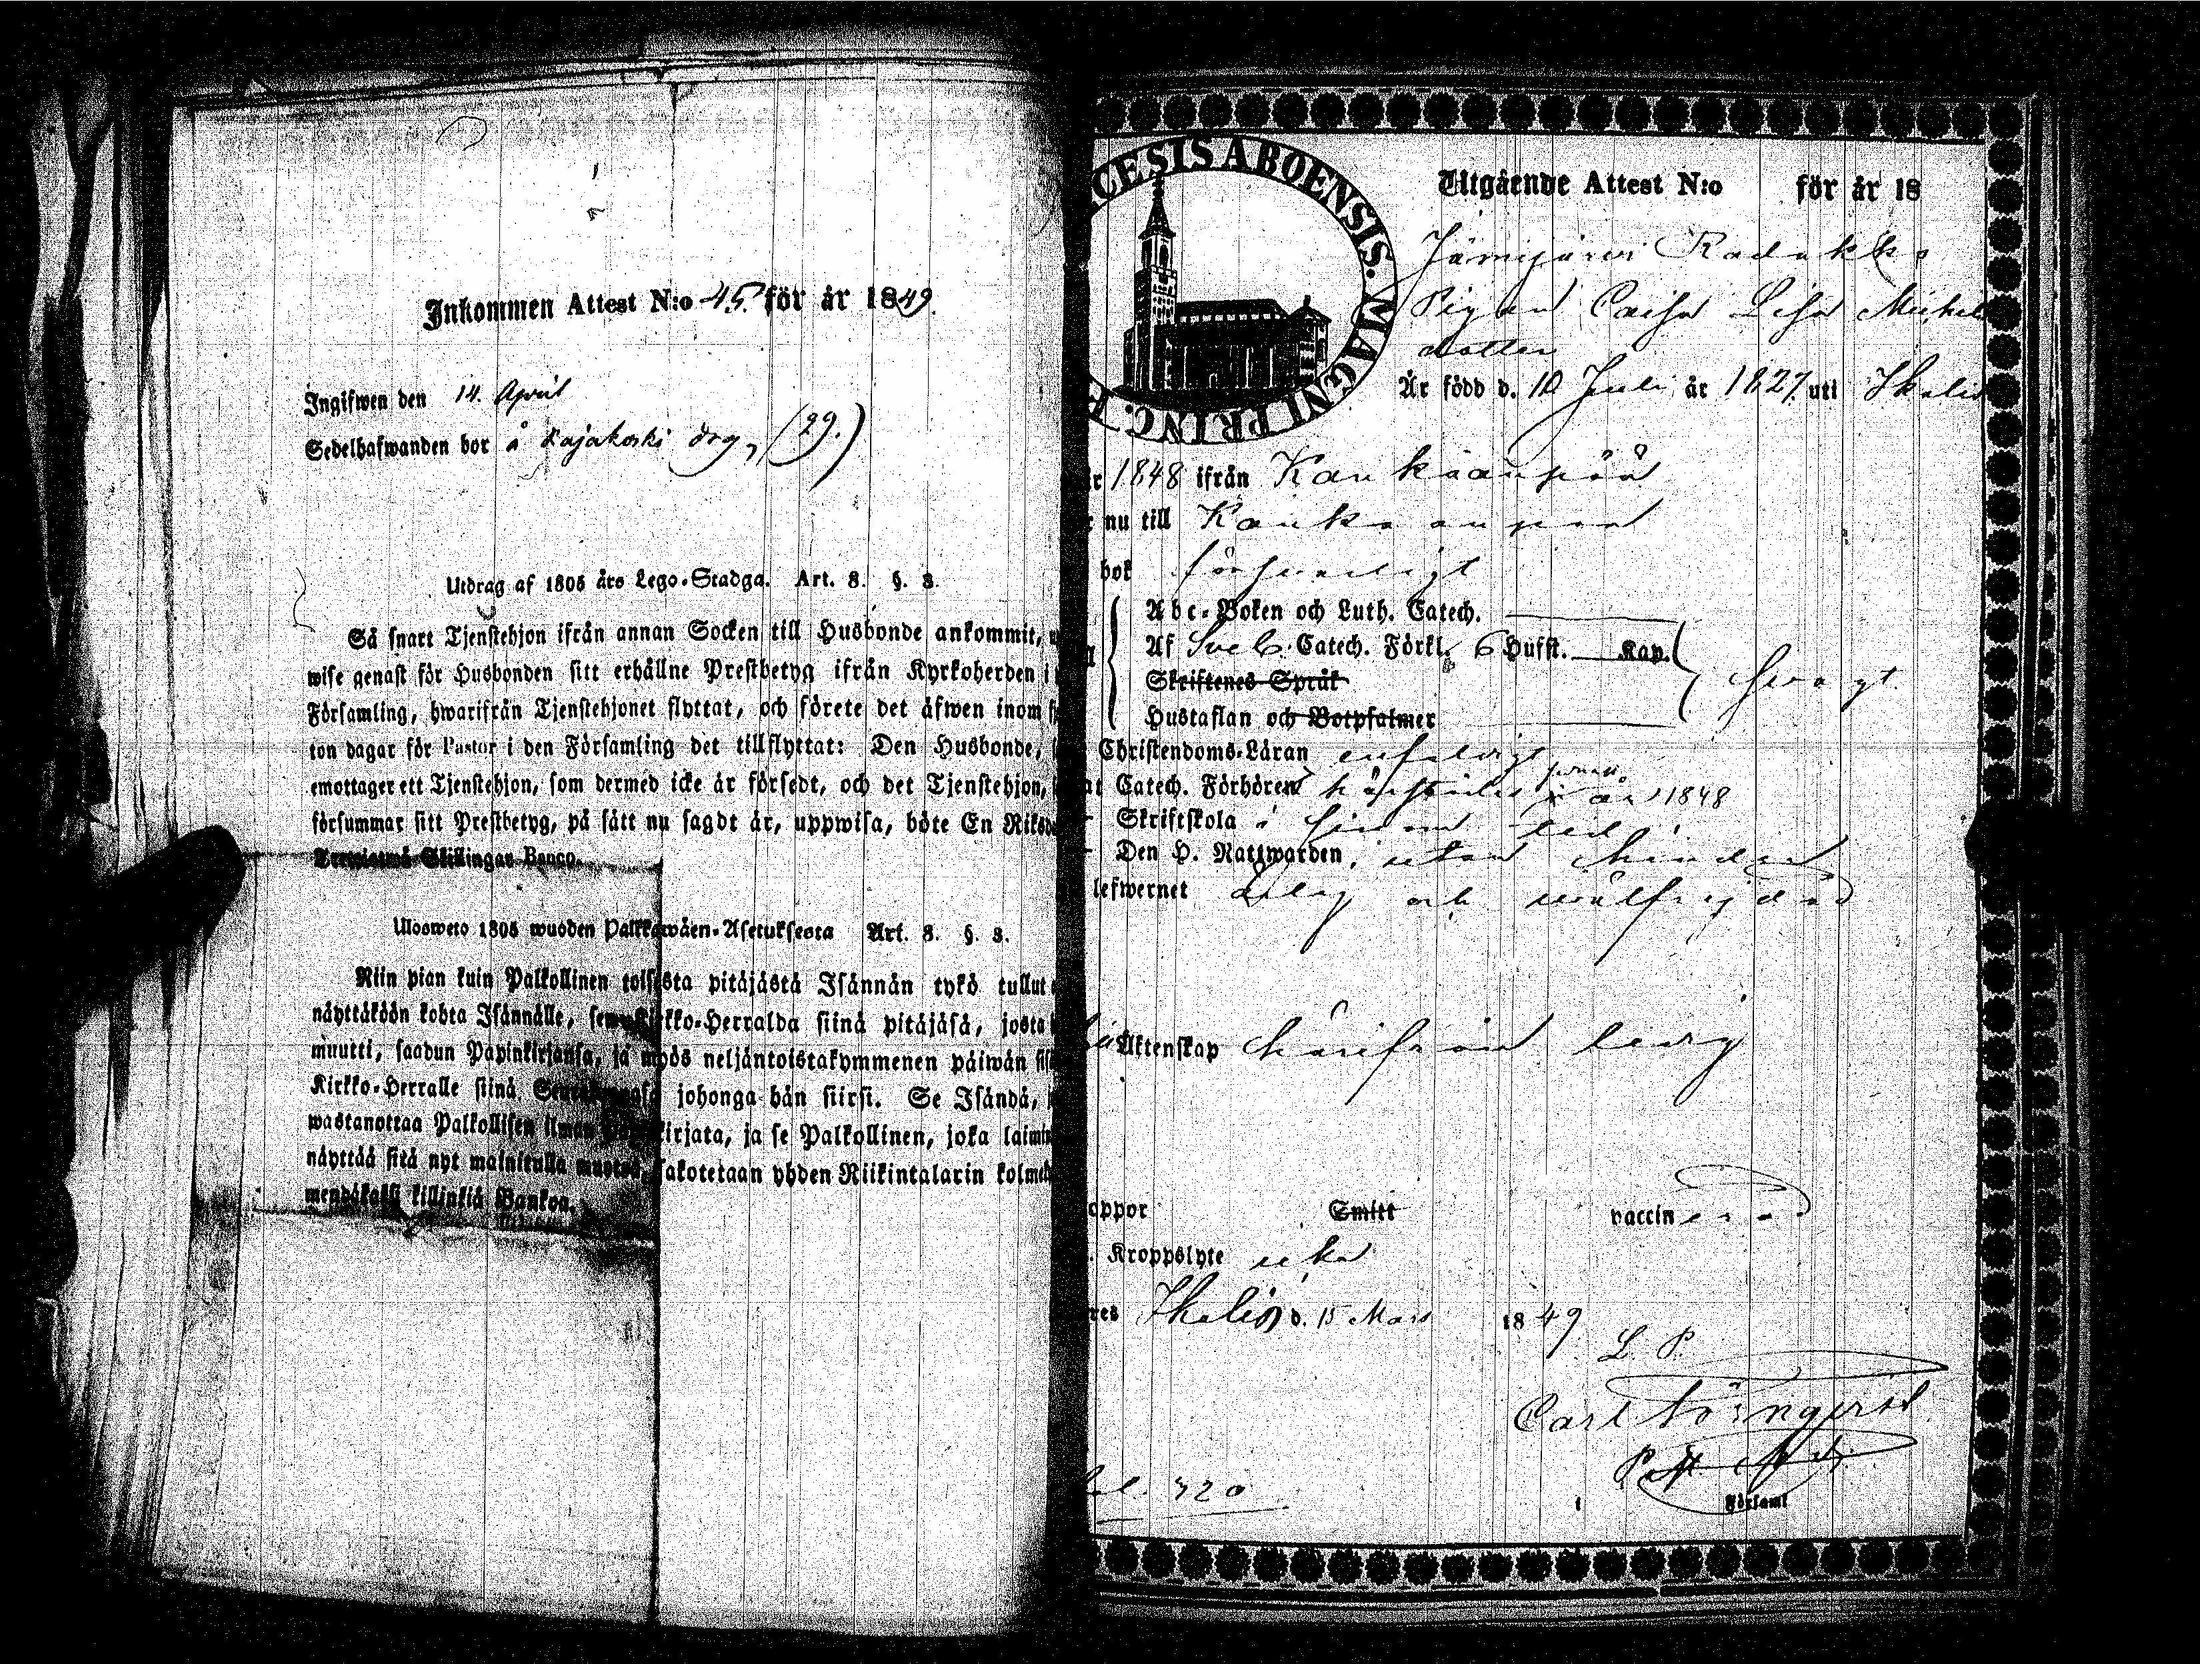 Inkommen Attest N:o 45. för år 1849.
Ingifwen den 14. April
Sedelhafwanden bor å Kajakoski (29.)
Utdrag af 1805 års Lego-Stadga. Art. 8. §. 3.
Så snart Tjenstehjon ifrån annan Socken till Husbonde ankommit,
wise genast för Husbonden sitt erhållne Prestbetyg ifrån Kyrkoherden i
Församling, hwarifrån Tjenstehjonet flyttat, och förete det äfwen inom
ton dagar för Pastor i den Församling det tillflyttat: Den Husbonde,
emottager ett Tjenstehjon, som dermed icke är försedt, och det Tjenstehjon,
försummar sitt Prestbetyg, på sätt nu sagdt är, uppwisa, böte En
Skillingar Banco.
Ulosweto 1805 wuoden Palkkawäen-Asetuksesta Art. 8. §. 3.
Niin pian kuin Palkollinen toisesta pitäjästä Isännän tykö tullut
näyttäköön kohta Isännälle, sen Kirkko-Herralda siinä pitäjäsä, josta
muutti, saadun Papinkirjansa, ja myös neljäntoistakymmenen päiwän
Kirkko-Herralle siinä johonga hän siirsi. Se Isändä,
wastanottaa Palkollisen ilman kirjata, ja se Palkollinen, joka
näyttää sitä nyt mainitulla muotoa, sakotetaan yhden Riikintalarin
killinkiä Bankoa.
CESIS ABOENSIS. MAGNI PRINC. F
Utgående Attest N:o för år 18
Jämijärvi
Pigan Caisa Lisa Michels
dotter
Är född d. 10 Juli år 1827 uti Ikalis
1848 ifrån Kankaanpää
nu till Kankaanpää
bok försvarligt
Abc-Boken och Luth. Catech.
Af Sveb. Catech. Förkl. 6 Hufst. Kap.
Skriftenes Språk svagt
Hustaflan och Botpsalmer
Christendoms-Läran enfaldigt
Catech. Förhören 1848
Skriftskola
Den H. Nattwarden, utan hinder
lefwernet ärlig och wälfrejdad
Äktenskap härifrån ledig
oppor Smitt vaccinerad
Kroppslyte utan
Ikalis d. 15 Mars 1849
L. P.
Carl Törnqvist
Församl
320